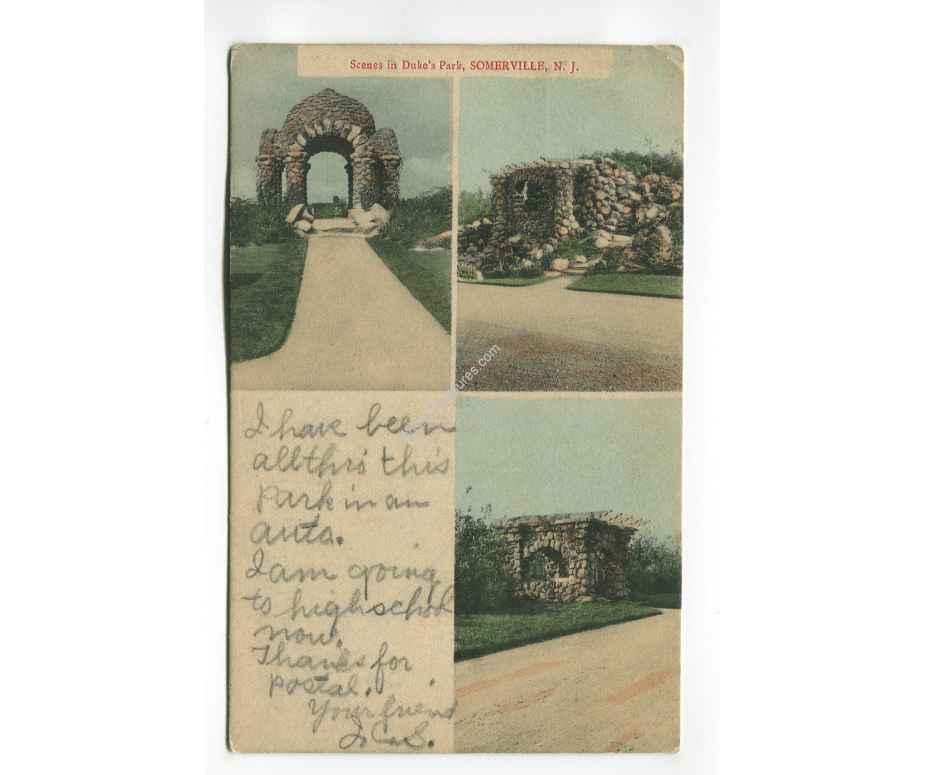 Scenes in Duke's Park, SOMERVILLE, N. J.
ures.com
I have been
all thro' this
Park in an
auto.
I am going
to high school
now.
Thanks for
postal.
Your friend